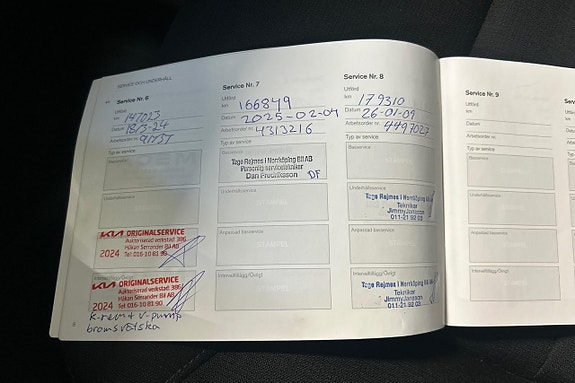 SERVICE OCH UNDERHÅLL
Service Nr. 6
Utförd
km 147023
Datum 18/3-24
Arbetsorder nr.
Typ av service
Basservice
Underhållsservice
KIA ORIGINALSERVICE
Auktoriserad verkstad 386
Håkan Serrander Bil AB
2024 Tel: 016-10 81 90
Intervalltillägg/Övrigt
KIA ORIGINALSERVICE
Auktoriserad verkstad 386
Håkan Serrander Bil AB
2024 Tel: 016-10 81 90
k-rem + v-pump
bromsvätska
Service Nr. 7
Utförd
km 166849
Datum 2025-02-04
Arbetsorder nr. 4313216
Typ av service
Basservice
Tage Rejmes i Norrköping Bil AB
Personlig servicetekniker
Dan Fredriksson
DF
Underhållsservice
STÄMPEL
Anpassad basservice
STÄMPEL
Intervalltillägg/Övrigt
STÄMPEL
Service Nr. 8
Utförd
km 179310
Datum 26-01-09
Arbetsorder nr. 4497027
Typ av service
Basservice
STÄMPEL
Underhållsservice
Tage Rejmes i Norrköping Bil AB
Tekniker
Jimmy Jansson
011-21 92 03
Anpassad basservice
STÄMPEL
Intervalltillägg/Övrigt
Tage Rejmes i Norrköping Bil AB
Tekniker
Jimmy Jansson
011-21 92 03
Service Nr. 9
Utförd
km
Datum
Arbetsorder nr.
Typ av service
Basservice
Underhållsservice
Anpassad basservice
Intervalltillägg/Övrigt